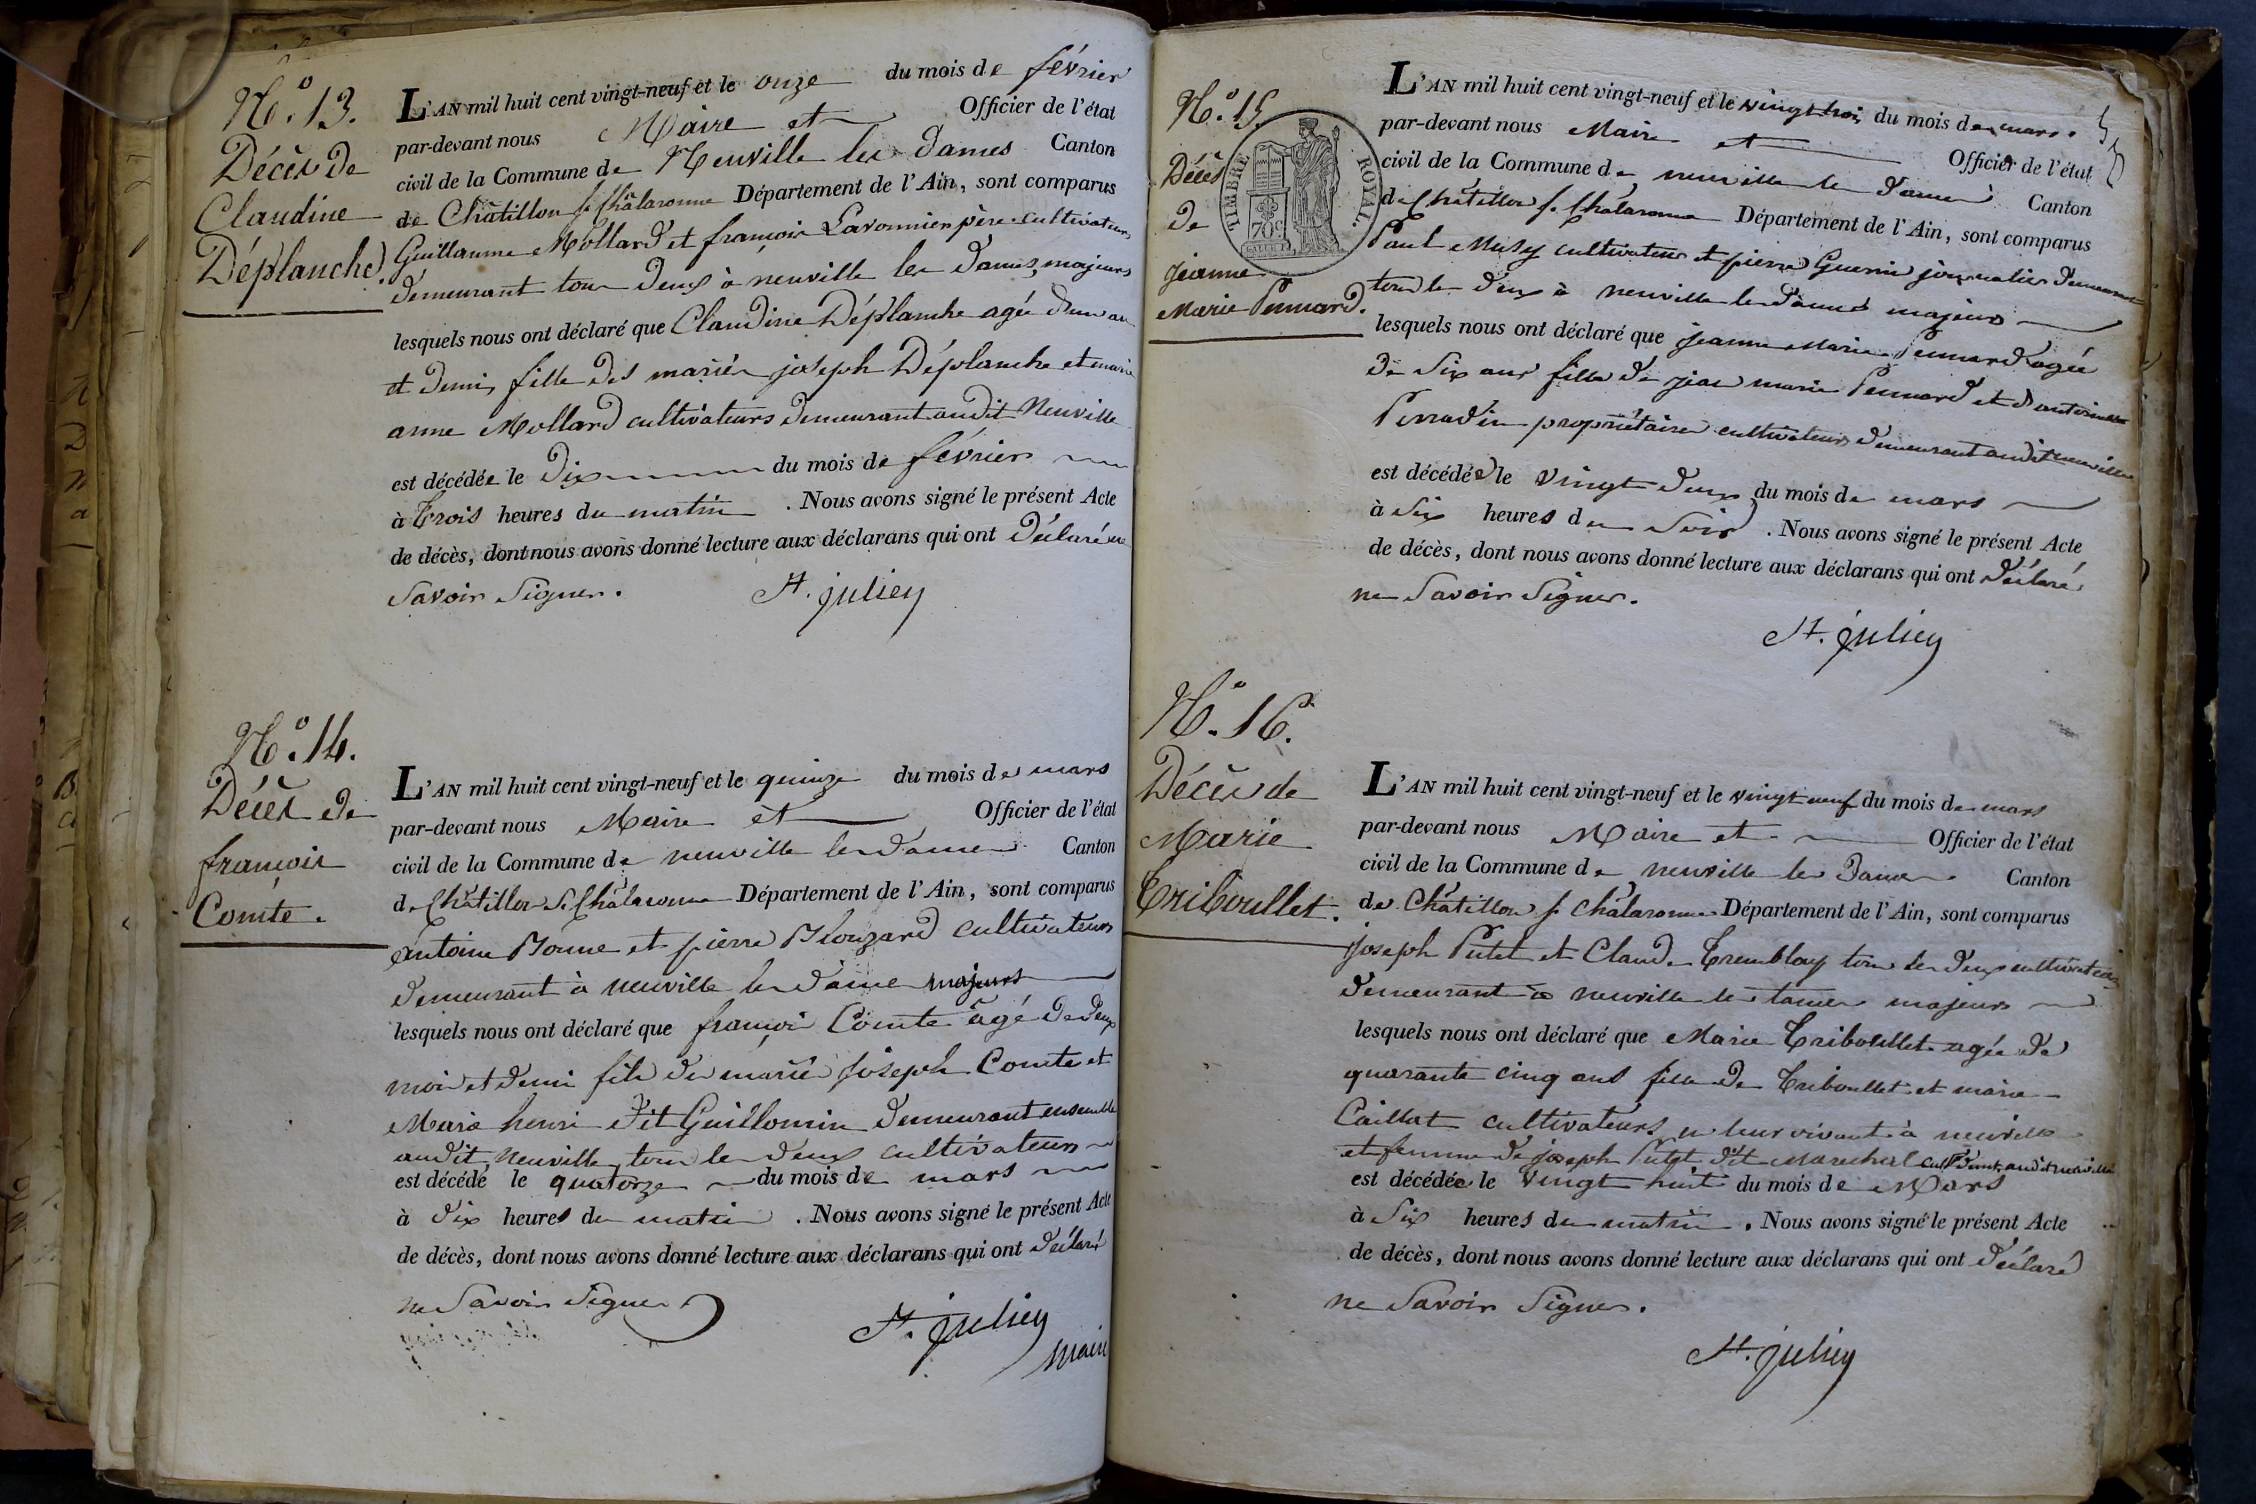 N.o 13.
Décès de
Claudine
Déplanche.
L'AN mil huit cent vingt-neuf et le onze du mois de février
par-devant nous Maire et Officier de l'état
civil de la Commune de Neuville les Dames Canton
de Châtillon s. Châlaronne Département de l'Ain, sont comparus
Guillaume Mollard et françois Lavonnier père cultivateurs
demeurant tous deux à neuville les dames, majeurs
lesquels nous ont déclaré que Claudine Déplanche agée d'un an
et demi, fille des mariés joseph Déplanche et marie
anne Mollard cultivateurs demeurant audit Neuville
est décédée le dix du mois de février
à trois heures du matin . Nous avons signé le présent Acte
de décès, dont nous avons donné lecture aux déclarans qui ont déclaré ne
savoir signer. St. julien
N.o 14.
Décès de
françois
Comte.
L'AN mil huit cent vingt-neuf et le quinze du mois de mars
par-devant nous Maire et Officier de l'état
civil de la Commune de neuville les dames Canton
de Châtillon s. Châlaronne Département de l'Ain, sont comparus
antoine et pierre cultivateurs
demeurant à neuville les dames majeurs
lesquels nous ont déclaré que françois Comte âgé de deux
mois et demi fils des mariés joseph Comte et
Marie henri dit Guillomin demeurant ensemble
audit Neuville tous les deux cultivateurs
est décédé le quatorze du mois de mars
à dix heures du matin . Nous avons signé le présent Acte
de décès, dont nous avons donné lecture aux déclarans qui ont déclaré
ne savoir signer
St. julien
maire
N.o 15.
Décès
de
jeanne
Marie Pennard.
TIMBRE ROYAL.
70c
L'AN mil huit cent vingt-neuf et le vingt trois du mois de mars.
par-devant nous Maire et Officier de l'état
civil de la Commune de neuville les dames Canton
de Châtillon s. Châlaronne Département de l'Ain, sont comparus
Paul Musy cultivateur et pierre Guerin journalier demeurant
tous les deux à neuville les dames majeurs
lesquels nous ont déclaré que jeanne Marie Pennard agée
de six ans fille de jean marie Pennard et d'antoinette
Perradin propriétaires cultivateurs demeurant audit neuville
est décédée le vingt deux du mois de mars
à six heures du soir . Nous avons signé le présent Acte
de décès, dont nous avons donné lecture aux déclarans qui ont déclaré
ne savoir signer.
St. julien
N.o 16.
Décès de
Marie
Triboullet.
L'AN mil huit cent vingt-neuf et le vingt neuf du mois de mars
par-devant nous Maire et Officier de l'état
civil de la Commune de neuville les Dames Canton
de Châtillon s. Châlaronne Département de l'Ain, sont comparus
joseph Putet et Claude Tremblay tous les deux cultivateurs
demeurant à neuville les dames majeurs
lesquels nous ont déclaré que Marie Triboullet agée de
quarante cinq ans fille de Triboullet et marie
Caillat cultivateurs en leur vivant à neuville
et femme de joseph Putet dit Marechal audit neuville
est décédée le vingt huit du mois de Mars
à six heures du matin . Nous avons signé le présent Acte
de décès, dont nous avons donné lecture aux déclarans qui ont déclaré
ne savoir signer.
St. julien